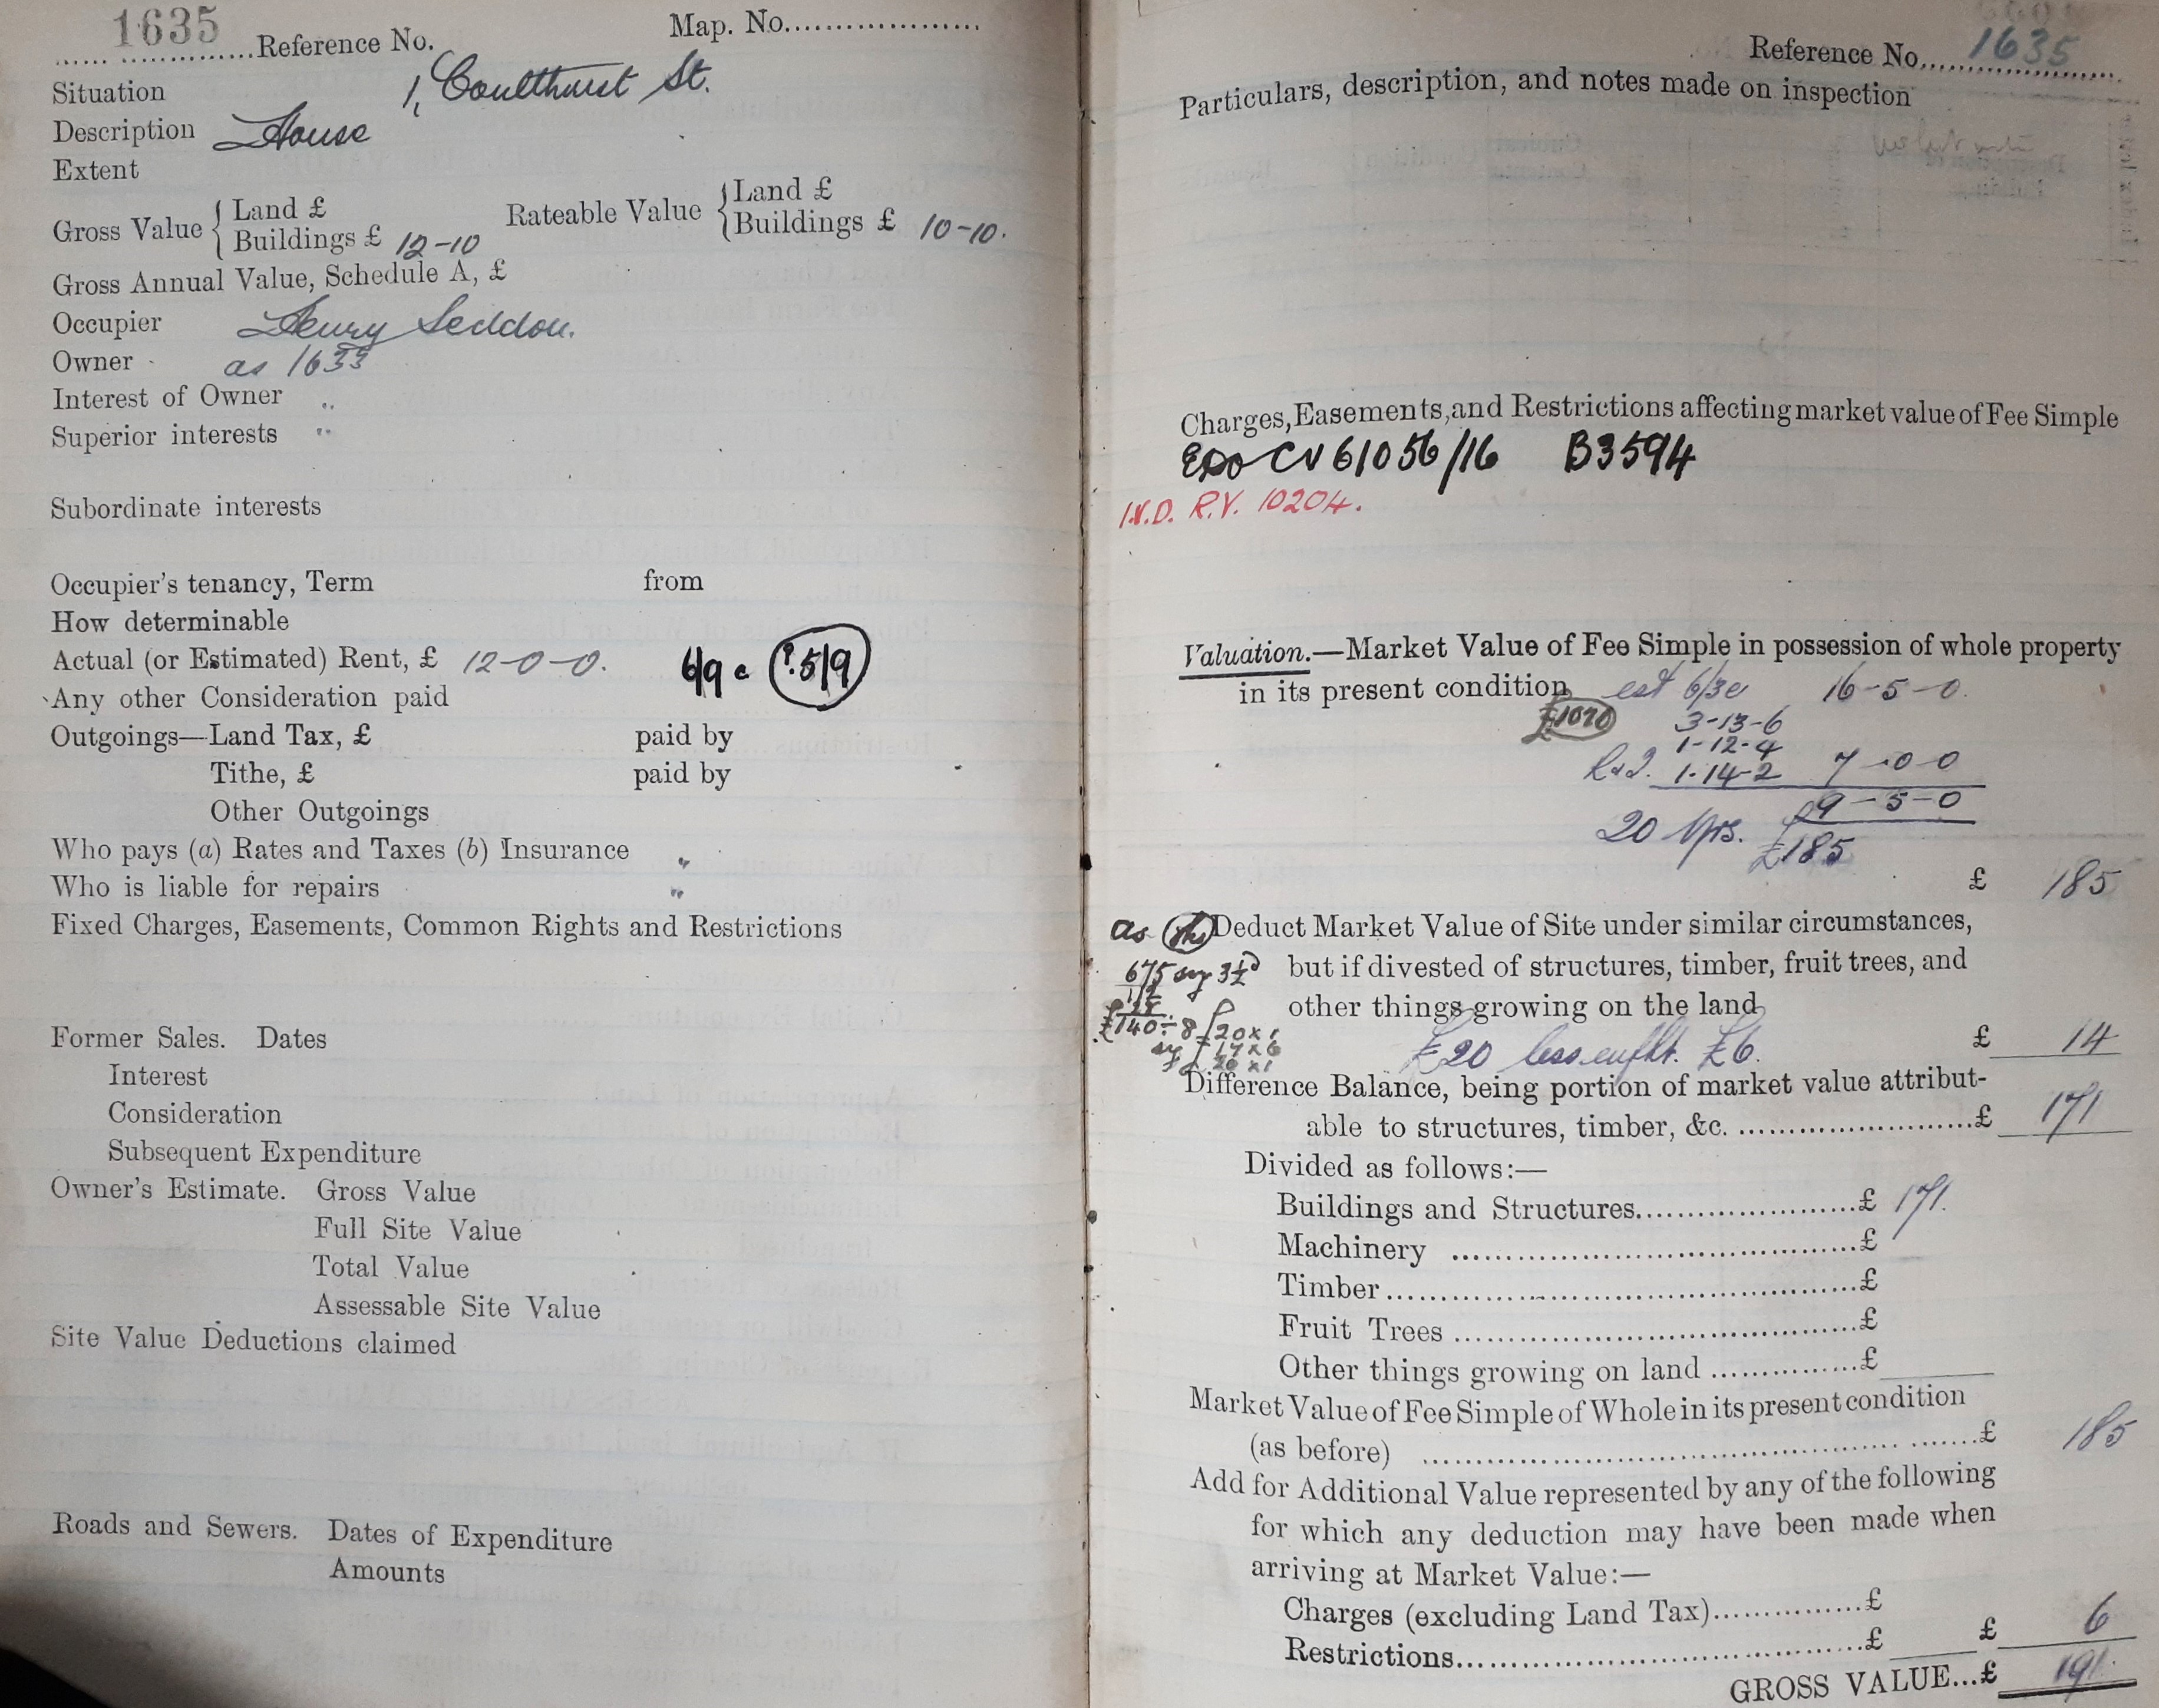 1635
Reference No.
Map. No.
Situation 1, Coulthurst St.
Description House
Extent
Gross Value { Land £
Buildings £ 12-10
Rateable Value { Land £
Buildings £ 10-10.
Gross Annual Value, Schedule A, £
Occupier Henry Seddon.
Owner as 1633
Interest of Owner "
Superior interests "
Subordinate interests
Occupier's tenancy, Term from
How determinable
Actual (or Estimated) Rent, £ 12-0-0. 6/9 c ?5/9
Any other Consideration paid
Outgoings—Land Tax, £ paid by
Tithe, £ paid by
Other Outgoings
Who pays (a) Rates and Taxes (b) Insurance "
Who is liable for repairs "
Fixed Charges, Easements, Common Rights and Restrictions
Former Sales. Dates
Interest
Consideration
Subsequent Expenditure
Owner's Estimate. Gross Value
Full Site Value
Total Value
Assessable Site Value
Site Value Deductions claimed
Roads and Sewers. Dates of Expenditure
Amounts
Reference No. 1635
Particulars, description, and notes made on inspection
Charges, Easements, and Restrictions affecting market value of Fee Simple
CV 61056/16 B3594
I.V.D. R.V. 10204.
Valuation.—Market Value of Fee Simple in possession of whole property
in its present condition est 6/3 16-5-0.
3-13-6
1-12-4
1-14-2 7-0-0
9-5-0
20 Yrs. £185
£ 185
as Deduct Market Value of Site under similar circumstances,
675 sy 3½d but if divested of structures, timber, fruit trees, and
other things growing on the land
£140÷8 20 x 1
£20 less £6. £ 14
Difference Balance, being portion of market value attribut-
able to structures, timber, &c. £ 171
Divided as follows:—
Buildings and Structures £ 171.
Machinery £
Timber £
Fruit Trees £
Other things growing on land £
Market Value of Fee Simple of Whole in its present condition
(as before) £ 185
Add for Additional Value represented by any of the following
for which any deduction may have been made when
arriving at Market Value:—
Charges (excluding Land Tax) £
Restrictions £ £ 6
GROSS VALUE...£ 191